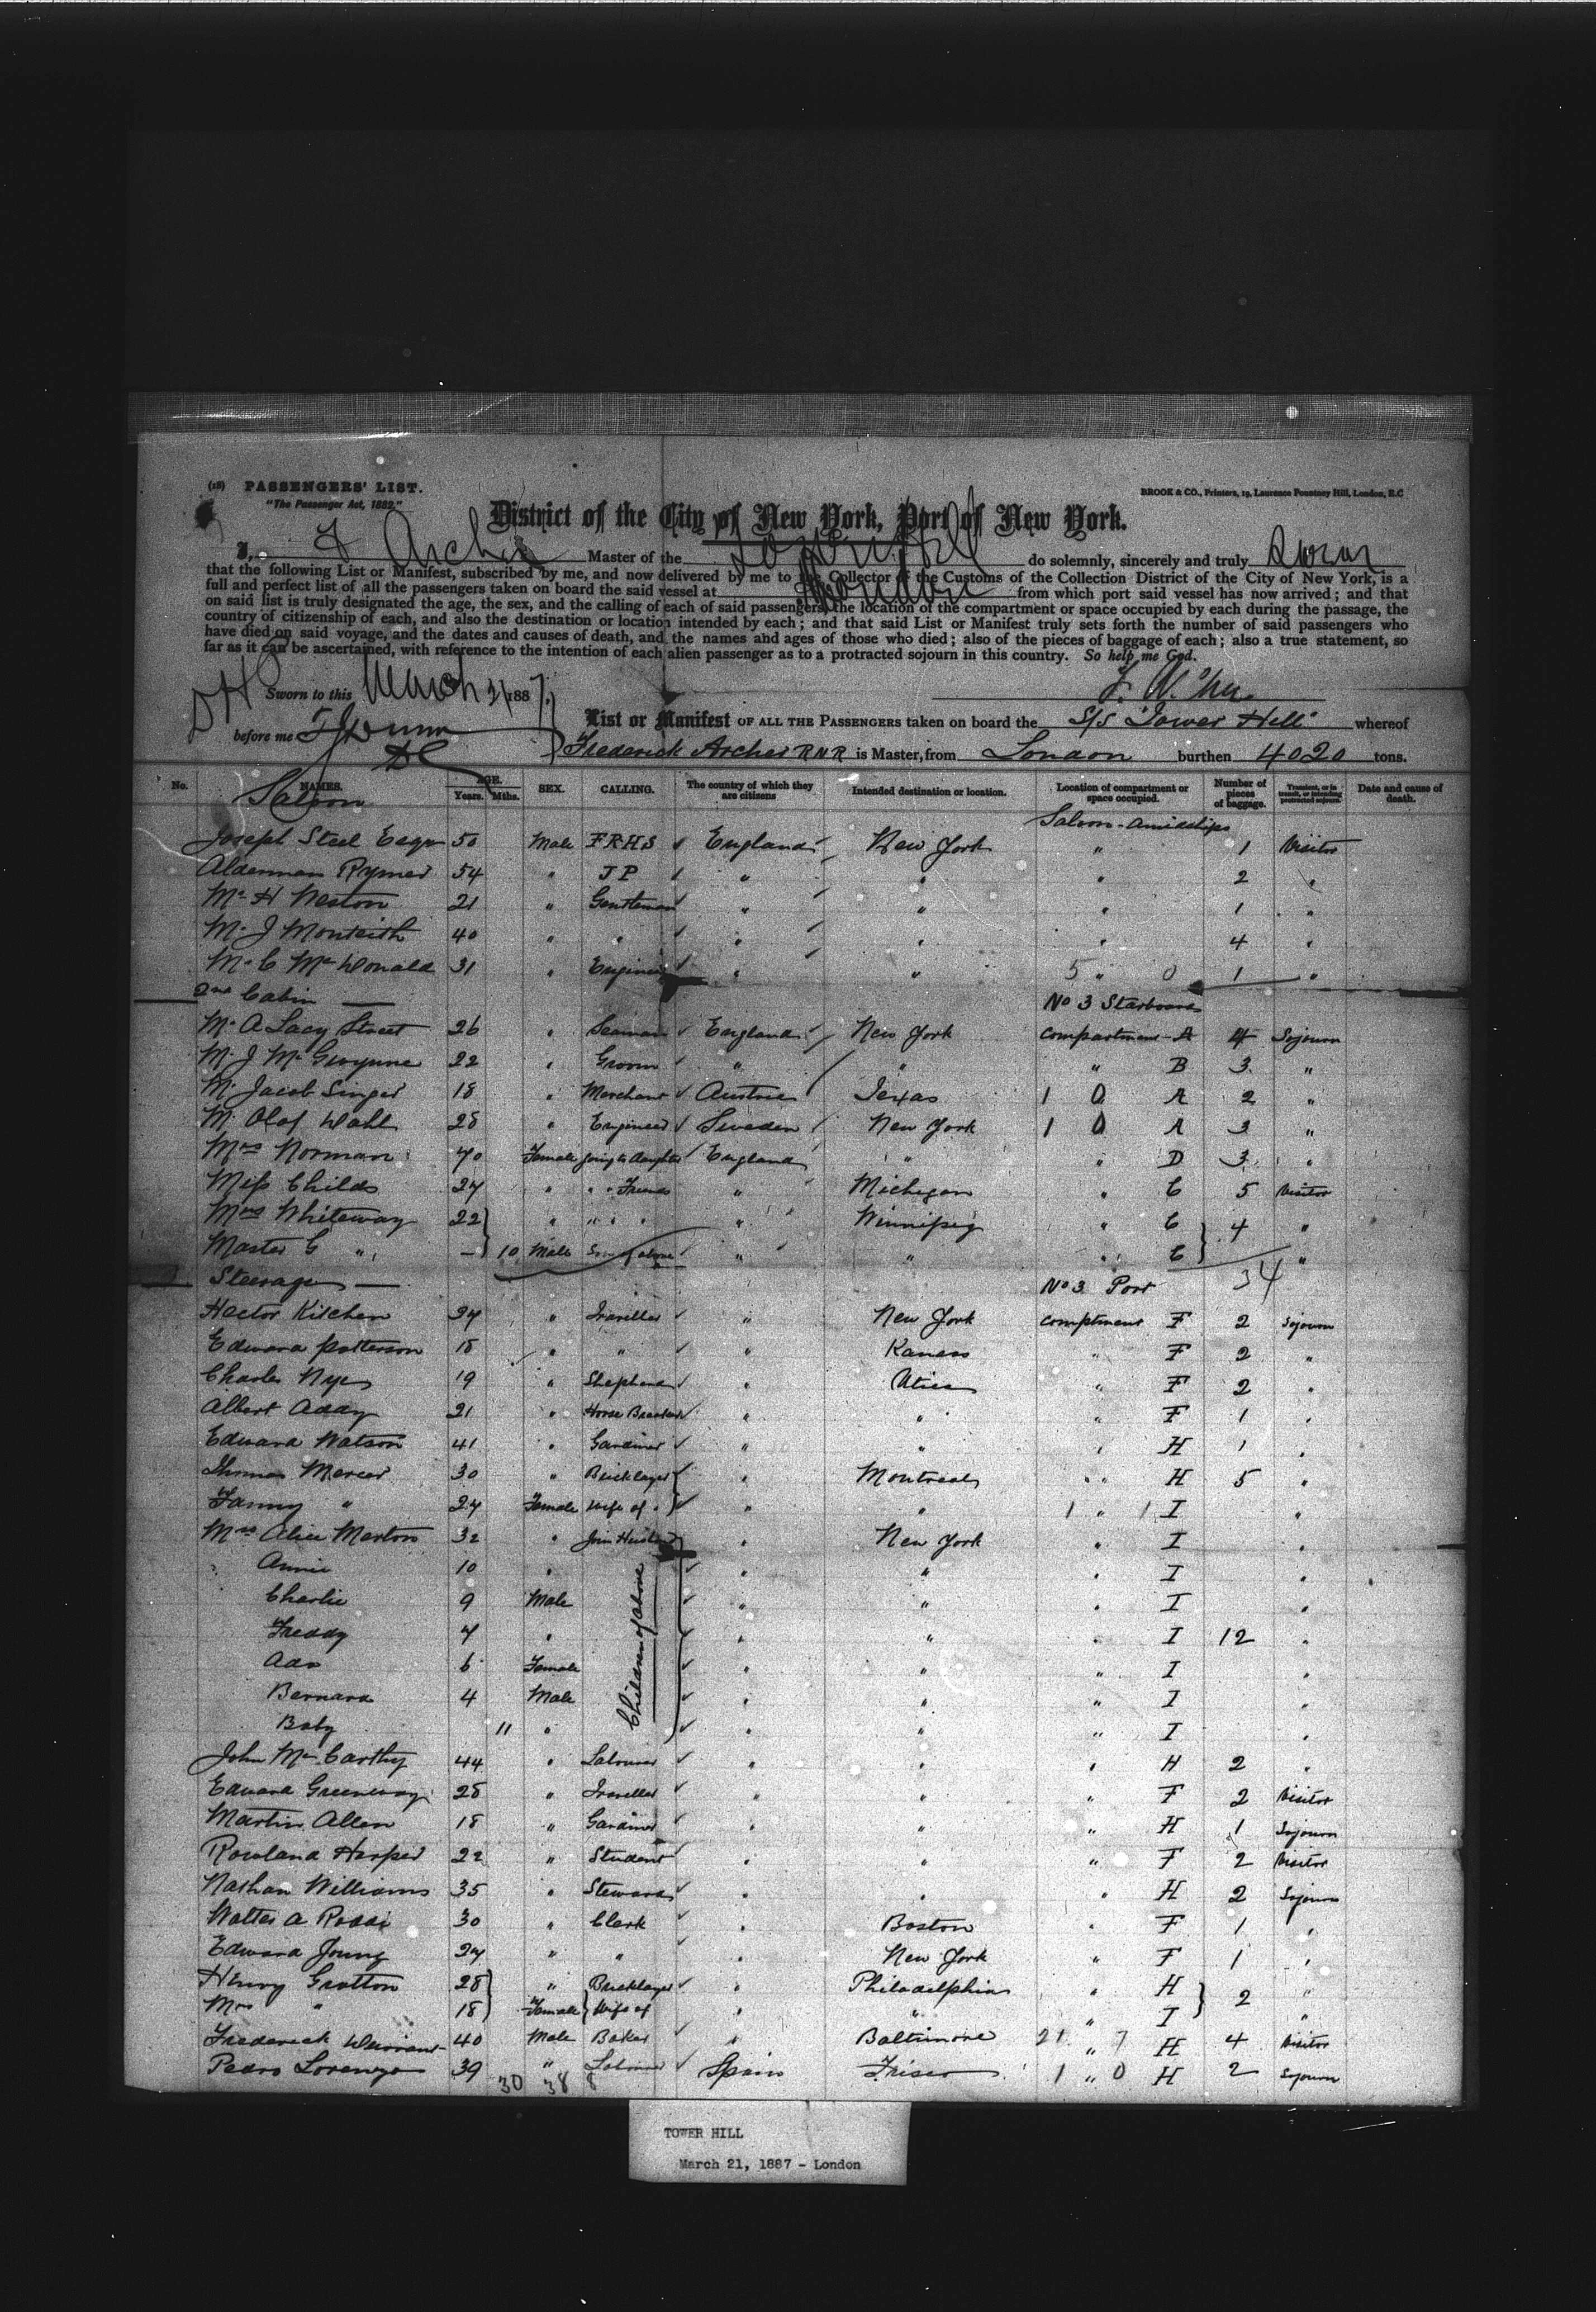 (18) PASSENGERS' LIST.
"The Passenger Act, 1882."
BROOK & CO., Printers, 19, Laurence Pountney Hill, London, E.C
District of the City of New York, Port of New York.
I, F Archer Master of the Tower Hill do solemnly, sincerely and truly Swear
that the following List or Manifest, subscribed by me, and now delivered by me to the Collector of the Customs of the Collection District of the City of New York, is a
full and perfect list of all the passengers taken on board the said vessel at London from which port said vessel has now arrived; and that
on said list is truly designated the age, the sex, and the calling of each of said passengers, the location of the compartment or space occupied by each during the passage, the
country of citizenship of each, and also the destination or location intended by each; and that said List or Manifest truly sets forth the number of said passengers who
have died on said voyage, and the dates and causes of death, and the names and ages of those who died; also of the pieces of baggage of each; also a true statement, so
far as it can be ascertained, with reference to the intention of each alien passenger as to a protracted sojourn in this country. So help me God.
Sworn to this March 21 1887.
before me
List or Manifest OF ALL THE PASSENGERS taken on board the S/S "Tower Hill" whereof
Frederick Archer RNR is Master, from London burthen 4020 tons.
No. NAMES. AGE. Years. Mths. SEX. CALLING. The country of which they are citizens Intended destination or location. Location of compartment or space occupied. Number of pieces of baggage. Transient, or in transit, or intending protracted sojourn. Date and cause of death.
Saloon Saloon-Amidships
Joseph Steel Esqr 50 Male FRHS England New York " 1 Visitor
Alderman Rymer 54 " JP " " " 2 "
Mr H Weston 21 " Gentleman " " " 1 "
Mr J Monteith 40 " " " " " 4 "
Mr C McDonald 31 " Engineer " " 5 " 0 1 "
2nd Cabin No 3 Starboard
Mr A Lacy Street 26 " Seaman England New York Compartment A 4 Sojourn
Mr J McGwynne 22 " Groom " " " B 3 "
Mr Jacob Singer 18 " Merchant Austria Texas 1 0 A 2 "
Mr Olof Dahl 28 " Engineer Sweden New York 1 0 A 3 "
Mrs Norman 70 Female going to daughter England " " D 3 "
Miss Childs 27 " " " Friends " Michigan " C 5 Visitor
Mrs Whiteway 22 " " " " " Winnipeg " C 4 "
Master G " - 10 Male Son of above " " " C "
Steerage No 3 Port 34
Hector Kitchen 27 " Traveller " New York Compartment F 2 Sojourn
Edward Patterson 18 " " " Kansas " F 2 "
Charles Nye 19 " Shepherd " Utica " F 2 "
Albert Addy 21 " Horse Breaker " " " F 1 "
Edward Watson 41 " Gardiner " " " H 1 "
Thomas Mercer 30 " Bricklayer " Montreal " " H 5 "
Fanny " 24 Female Wife of " " " 1 " 1 I "
Mrs Alice Marton 32 " Join Husband " New York " I "
Annie 10 " Children of above " " " I "
Charlie 9 Male " " " I "
Freddy 7 " " " " I 12 "
Ada 6 Female " " " I "
Bernard 4 Male " " " I "
Baby 11 " " " " I "
John McCarthy 44 " Labourer " " " H 2 "
Edward Greenway 28 " Traveller " " " F 2 Visitor
Martin Allen 18 " Gardiner " " " H 1 Sojourn
Rowland Harper 22 " Student " " " F 2 Visitor
Nathan Williams 35 " Steward " " " H 2 Sojourn
Walter A 30 " Clerk " Boston " F 1 "
Edward Young 27 " " " New York " F 1 "
Henry Gratton 28 " Bricklayer " Philadelphia H 2 "
Mrs " 18 Female Wife of " " " I "
Frederick 40 Male Baker " Baltimore 21 " 7 H 4 Visitor
Pedro Lorenzo 39 " Labourer Spain Frisco 1 " 0 H 2 Sojourn
30 38 8
TOWER HILL
March 21, 1887 - London